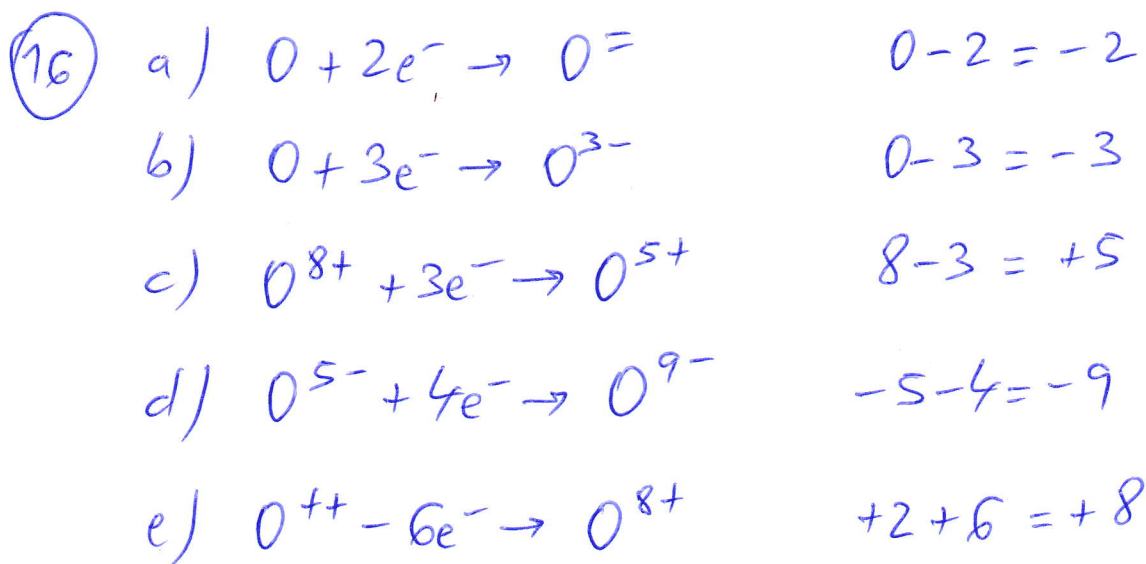 16 a) O + 2e⁻ → O⁼ 0 - 2 = - 2
b) O + 3e⁻ → O³⁻ 0 - 3 = - 3
c) O⁸⁺ + 3e⁻ → O⁵⁺ 8 - 3 = + 5
d) O⁵⁻ + 4e⁻ → O⁹⁻ - 5 - 4 = - 9
e) O⁺⁺ - 6e⁻ → O⁸⁺ + 2 + 6 = + 8